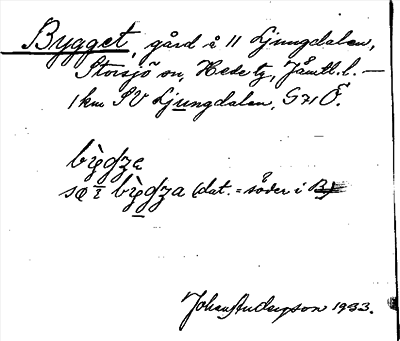 Bygget, gård å 11 Ljungdalen,
Storsjö sn, Hede tg, Jämtl. l. —
1 km SV Ljungdalen, G71Ö.
bỳgʒe
sø ɪ bỳgʒa (dat. = söder i B.)
Johan Anderson 1933.